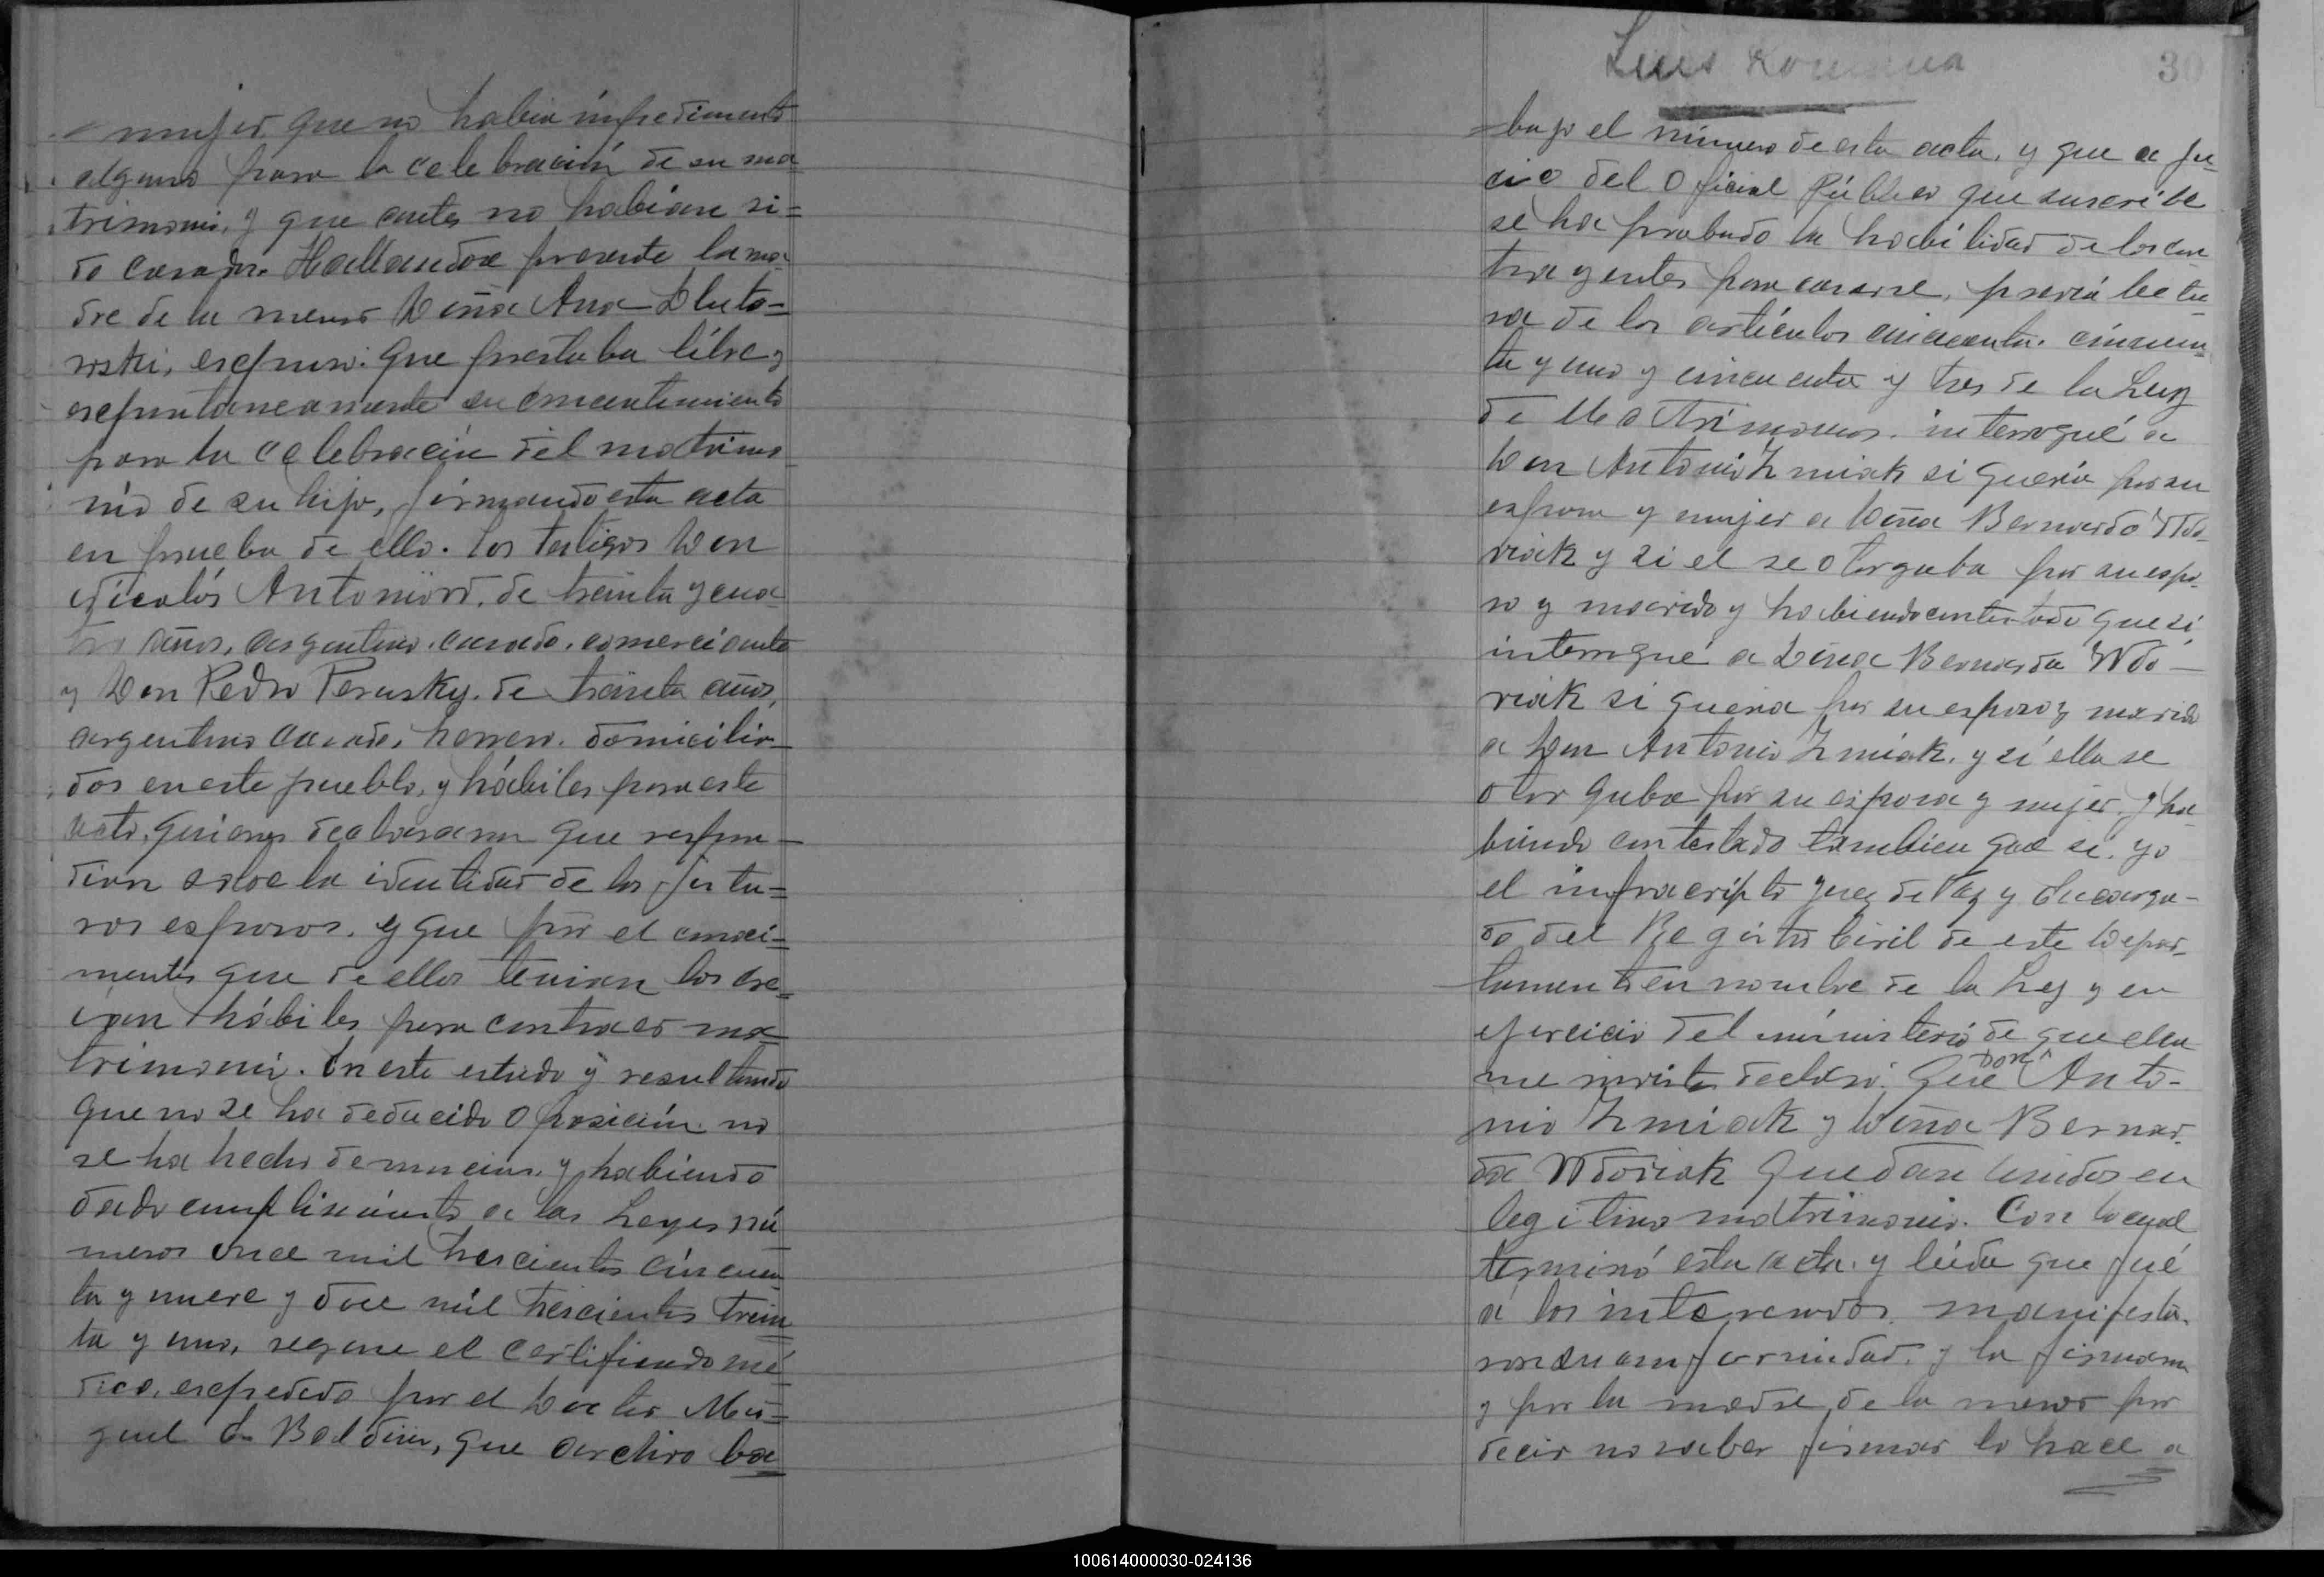 mujer, que no habia impedimento
alguno para la celebración de su ma
trimonio, y que antes no habian si=
do casados. Hallandose presente la ma-
dre de la menor Doña Ana Dluto=
roski, espuso: Que prestaba libre y
espontaneamente su consentimiento
para la celebracion del matrimo
nio de su hija, firmando esta acta
en prueba de ello. Los testigos Don
Nicolás Antoniow, de treinta y cua
tro años, argentino, casado, comerciante
y Don Pedro Perusky, de treinta años,
argentino casado, herrero, domicilia-
dos en este pueblo, y hábiles para este
acto, quienes declararon que respon-
dian sobre la identidad de los futu=
ros esposos, y que por el conoci=
mento que de ellos tenian los cre=
ian hábiles para contraer ma=
trimonio. En este estado y resultando
que no se ha deducido oposición, no
se ha hecho denuncias, y habiendo
dado cumplimiento a las Leyes nú
meros once mil trescientos cincuen
ta y nueve y doce mil trescientos trein
ta y uno, segun el certificado mé
dico, espedido por el Doctor Mi=
guel C. Baldini, que archivo ba
Luis Romana
30
=bajo el número de esta acta, y que a jui
cio del Oficial Público que suscribe
se ha probado la habilidad de los con
trayentes para casarse, previa lectu
ra de los artículos cincuenta, cincuen
ta y uno y cincuenta y tres de la Ley
de Matrimonios, interrogué a
Don Antonio Zmiak si queria por su
esposa y mujer a Doña Bernarda Wdo-
riak y si el se otorgaba por su espo-
so y marido y habiendo contestado que si
interrogué a Doña Bernarda Wdo-
riak si queria por su esposo y marido
a Don Antonio Zmiak, y si ella se
otorgaba por su esposa y mujer, y ha
biendo contestado tambien que si, yo
el infrascripto Juez de Paz y Encarga-
do del Registro Civil de este Depar-
tamento en nombre de la Ley y en
ejercicio del ministerio de que ella
me inviste declaro: Que don Anto-
nio Zmiak y Doña Bernar-
da Wdoriak quedan unidos en
legitimo matrimonio. Con lo cual
terminó esta acta, y leida que fué
á los interesados, manifesta-
ron su conformidad, y la firmaron
y por la madre de la menor por
decir no saber firmar lo hace a
100614000030-024136